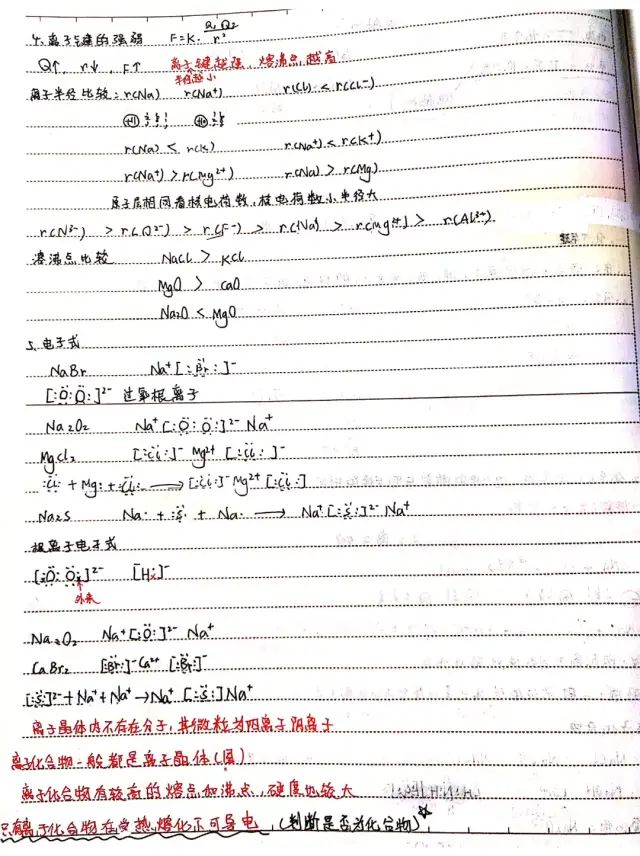 4. 离子键的强弱 F=K·Q₁Q₂/r²
Q↑, r↓, F↑ 离子键越强, 熔沸点越高
半径越小
离子半径比较: r(Na) r(Na⁺) r(Cl) < r(Cl⁻)
r(Na) < r(K) r(Na⁺) < r(K⁺)
r(Na⁺) > r(Mg²⁺) r(Na) > r(Mg)
层相同看核电荷数, 核电荷数小, 半径大
r(N³⁻) > r(O²⁻) > r(F⁻) > r(Na⁺) > r(Mg²⁺) > r(Al³⁺).
沸点比较 NaCl > KCl
MgO > CaO
Na2O < MgO
5. 电子式
NaBr Na⁺[:Br:]⁻
[:O:O:]²⁻ 过氧根离子
Na2O2 Na⁺[:O:O:]²⁻ Na⁺
MgCl2 [:Cl:]⁻ Mg²⁺ [:Cl:]⁻
:Cl· + Mg: + ·Cl: → [:Cl:]⁻ Mg²⁺ [:Cl:]
Na2S Na· + :S· + Na· → Na⁺[:S:]²⁻ Na⁺
根离子电子式
[:O:O:]²⁻ [H:]⁻
外来
Na2O2 Na⁺[:O:]²⁻ Na⁺
CaBr2 [:Br:]⁻ Ca²⁺ [:Br:]⁻
[:S:]²⁻ + Na⁺ + Na⁺ → Na⁺ [:S:] Na⁺
离子晶体内不存在分子, 其微粒为阳离子阴离子
离子化合物一般都是离子晶体(固)
离子化合物有较高的熔点和沸点, 硬度也较大
只有离子化合物在受热熔化下可导电 (判断是否为化合物)☆